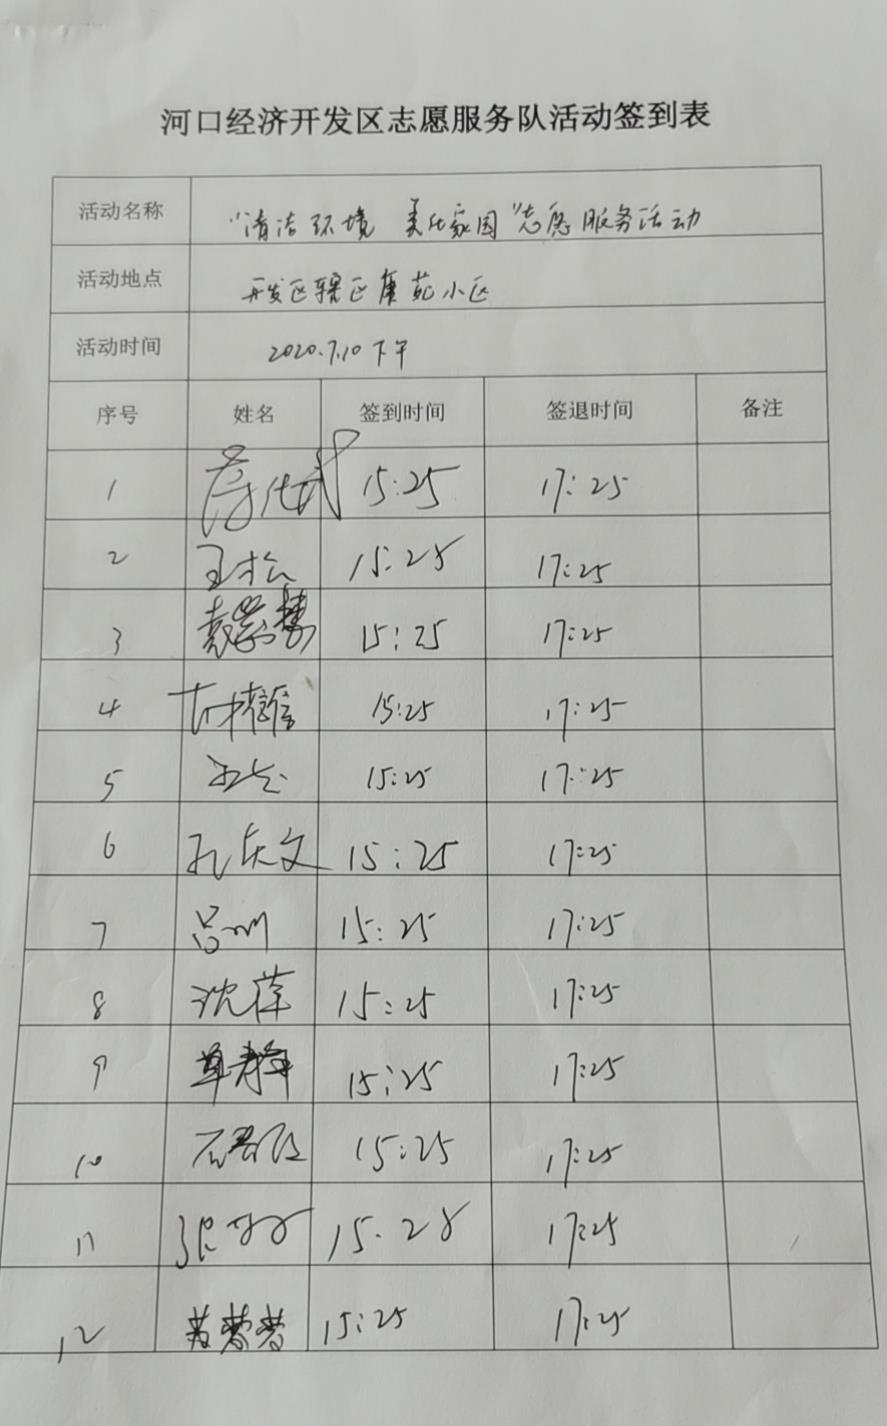 河口经济开发区志愿服务队活动签到表
活动名称 “清洁环境 美化家园”志愿服务活动
活动地点 开发区辖区康苑小区
活动时间 2020.7.10下午
序号 姓名 签到时间 签退时间 备注
1 15:25 17:25
2 王松 15:25 17:25
3 15:25 17:25
4 15:25 17:25
5 15:25 17:25
6 孔庆文 15:25 17:25
7 吕川 15:25 17:25
8 沈萍 15:25 17:25
9 单静 15:25 17:25
10 15:25 17:25
11 张 15.28 17:25
12 15:25 17:25